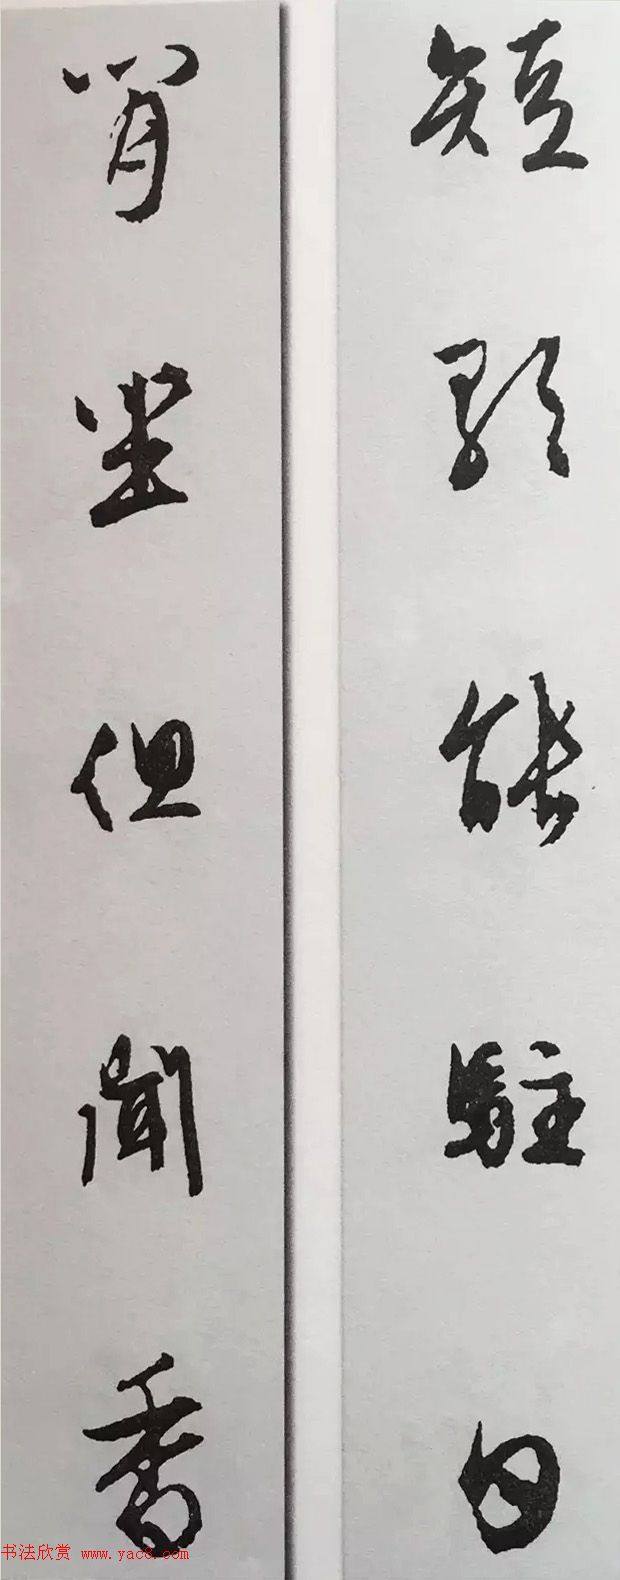 短歌能駐日
閒坐但聞香
书法欣赏 www.yac8.com